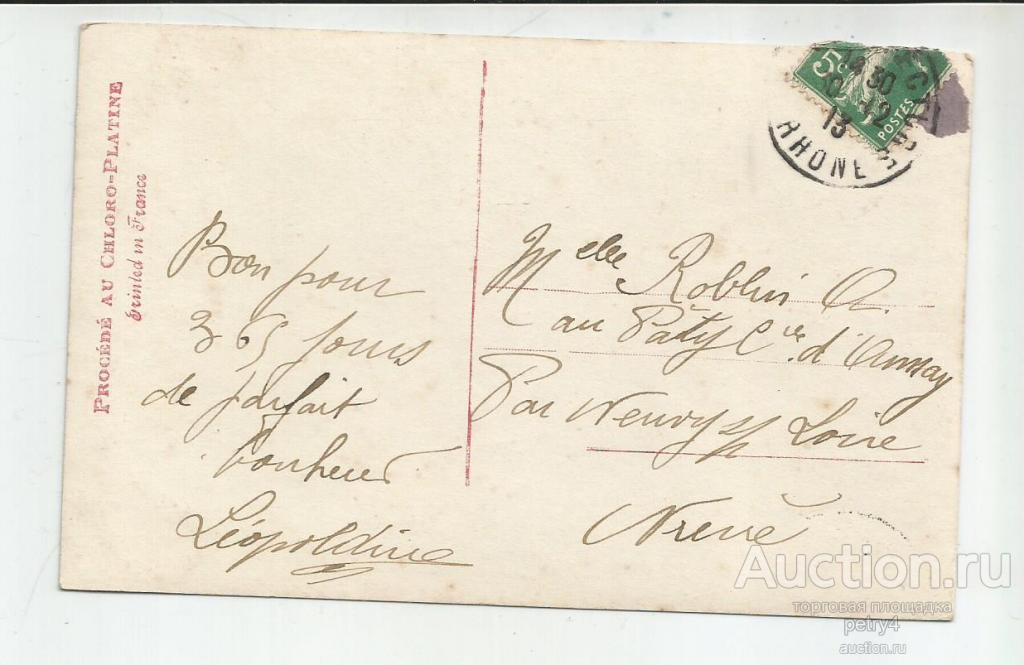 PROCÉDÉ AU CHLORO-PLATINE
Printed in France
Bon pour
365 jours
de parfait
bonheur
Léopoldine
5c
POSTES
30
12
13
RHONE
Melle Roblin A.
au Paty Cne d'Annay
Par Neuvy s/ Loire
Nievre
Auction.ru
торговая площадка
petry4
auction.ru